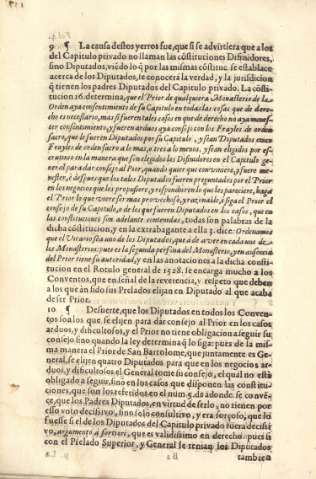 9 ¶ La causa destos yerros fue, que si se advirtiera que a los
del Capitulo privado no llaman las cõstituciones Difinidores,
sino Diputados, viẽdo lo q̃ por las mismas cõstituc. se establace
acerca de los Diputados, se conocerà la verdad, y la jurisdicion
q̃ tienen los padres Diputados del Capitulo privado. La cõsti-
tucion 16. determina, que el Prior de qualquiera Monasterio de la
Orden aya consentimiento de su Capitulo en todas las cosas que de dere-
cho es necessario, mas si fueren tales cosas en que de derecho no aya menes-
ter consentimiento, y fueren arduas aya consejo con los Frayles de orden
sacro, que se fueren Diputados por su Capitulo, y sean Diputados cinco
Frayles de orden sacro a lo mas, o tres a lo menos, y sean elegidos por es-
crutinio en la manera que son elegidos los Difinidores en el Capitulo ge-
neral para dar consejo al Prior, quando quier que conviniere, o fuere me-
nester, è despues que los tales Diputados fueren preguntados por el Prior
en los negocios que les propusiere, y respondieren lo que les pareciere, haga
el Prior lo que viere ser mas provechoso, y razonable, è siga el Prior el
consejo de su Capitulo, o de los que fueren Diputados en los casos, que en
las constituciones son adelante contenidas, todas son palabras de la
dicha cõstitucion, y en la extravagante a ella §. dice: Ordenamos
que el Vicario sea uno de los Diputados, pues de aver en cada uno de
los Monasterios, pues es la segunda persona del Monasterio, y en ausencia
del Prior tiene su autoridad, y en las anotaciones a la dicha consti-
tucion en el Rotulo general de 1528. se encarga mucho a los
Conventos, que en señal de la reverencia, y respeto que deben
a los que an sido sus Prelados elijan en Diputado al que acaba
de ser Prior.
10 ¶ De suerte, que los Diputados en todos los Conven-
tos son los que se elijen para dar consejo al Prior en los casos
arduos, y dificultosos, y el Prior no tiene obligacion a seguir su
consejo sino quando la ley determina q̃ lo siga: pues de la mis-
ma manera el Prior de San Bartolome, que juntamente es Ge-
neral, se elijen quatro Diputados para que en los negocios ar-
duos, y dificultosos el General tome su consejo, el qual no està
obligado a seguir, sino en los casos que disponen las constitu-
ciones, que son los referidos en el num. 5. da adonde se conve-
ce, que los Padres Diputados, en virtud de serlo, no tienen por
esso voto decisivo, sino solo consultivo, y era forçoso, que si
fuesse el de los Diputados del Capitulo privado fuera decisi-
vo, argumento à fortiori, que es validissimo en derecho, pues si
con el Prelado Superior, y General se tenian los Diputados
B 2 tambien